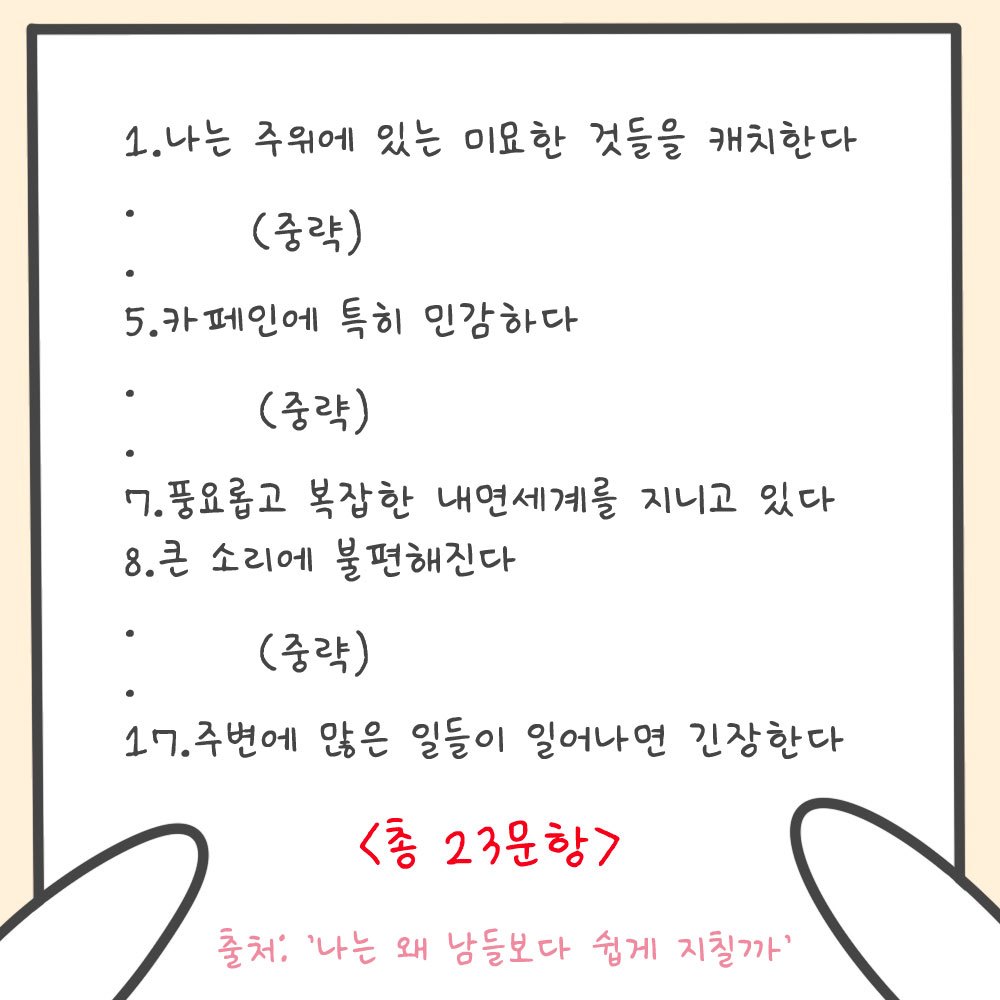 1.나는 주위에 있는 미묘한 것들을 캐치한다
.
(중략)
.
5.카페인에 특히 민감하다
.
(중략)
.
7.풍요롭고 복잡한 내면세계를 지니고 있다
8.큰 소리에 불편해진다
.
(중략)
.
17.주변에 많은 일들이 일어나면 긴장한다
<총 23문항>
출처: '나는 왜 남들보다 쉽게 지칠까'